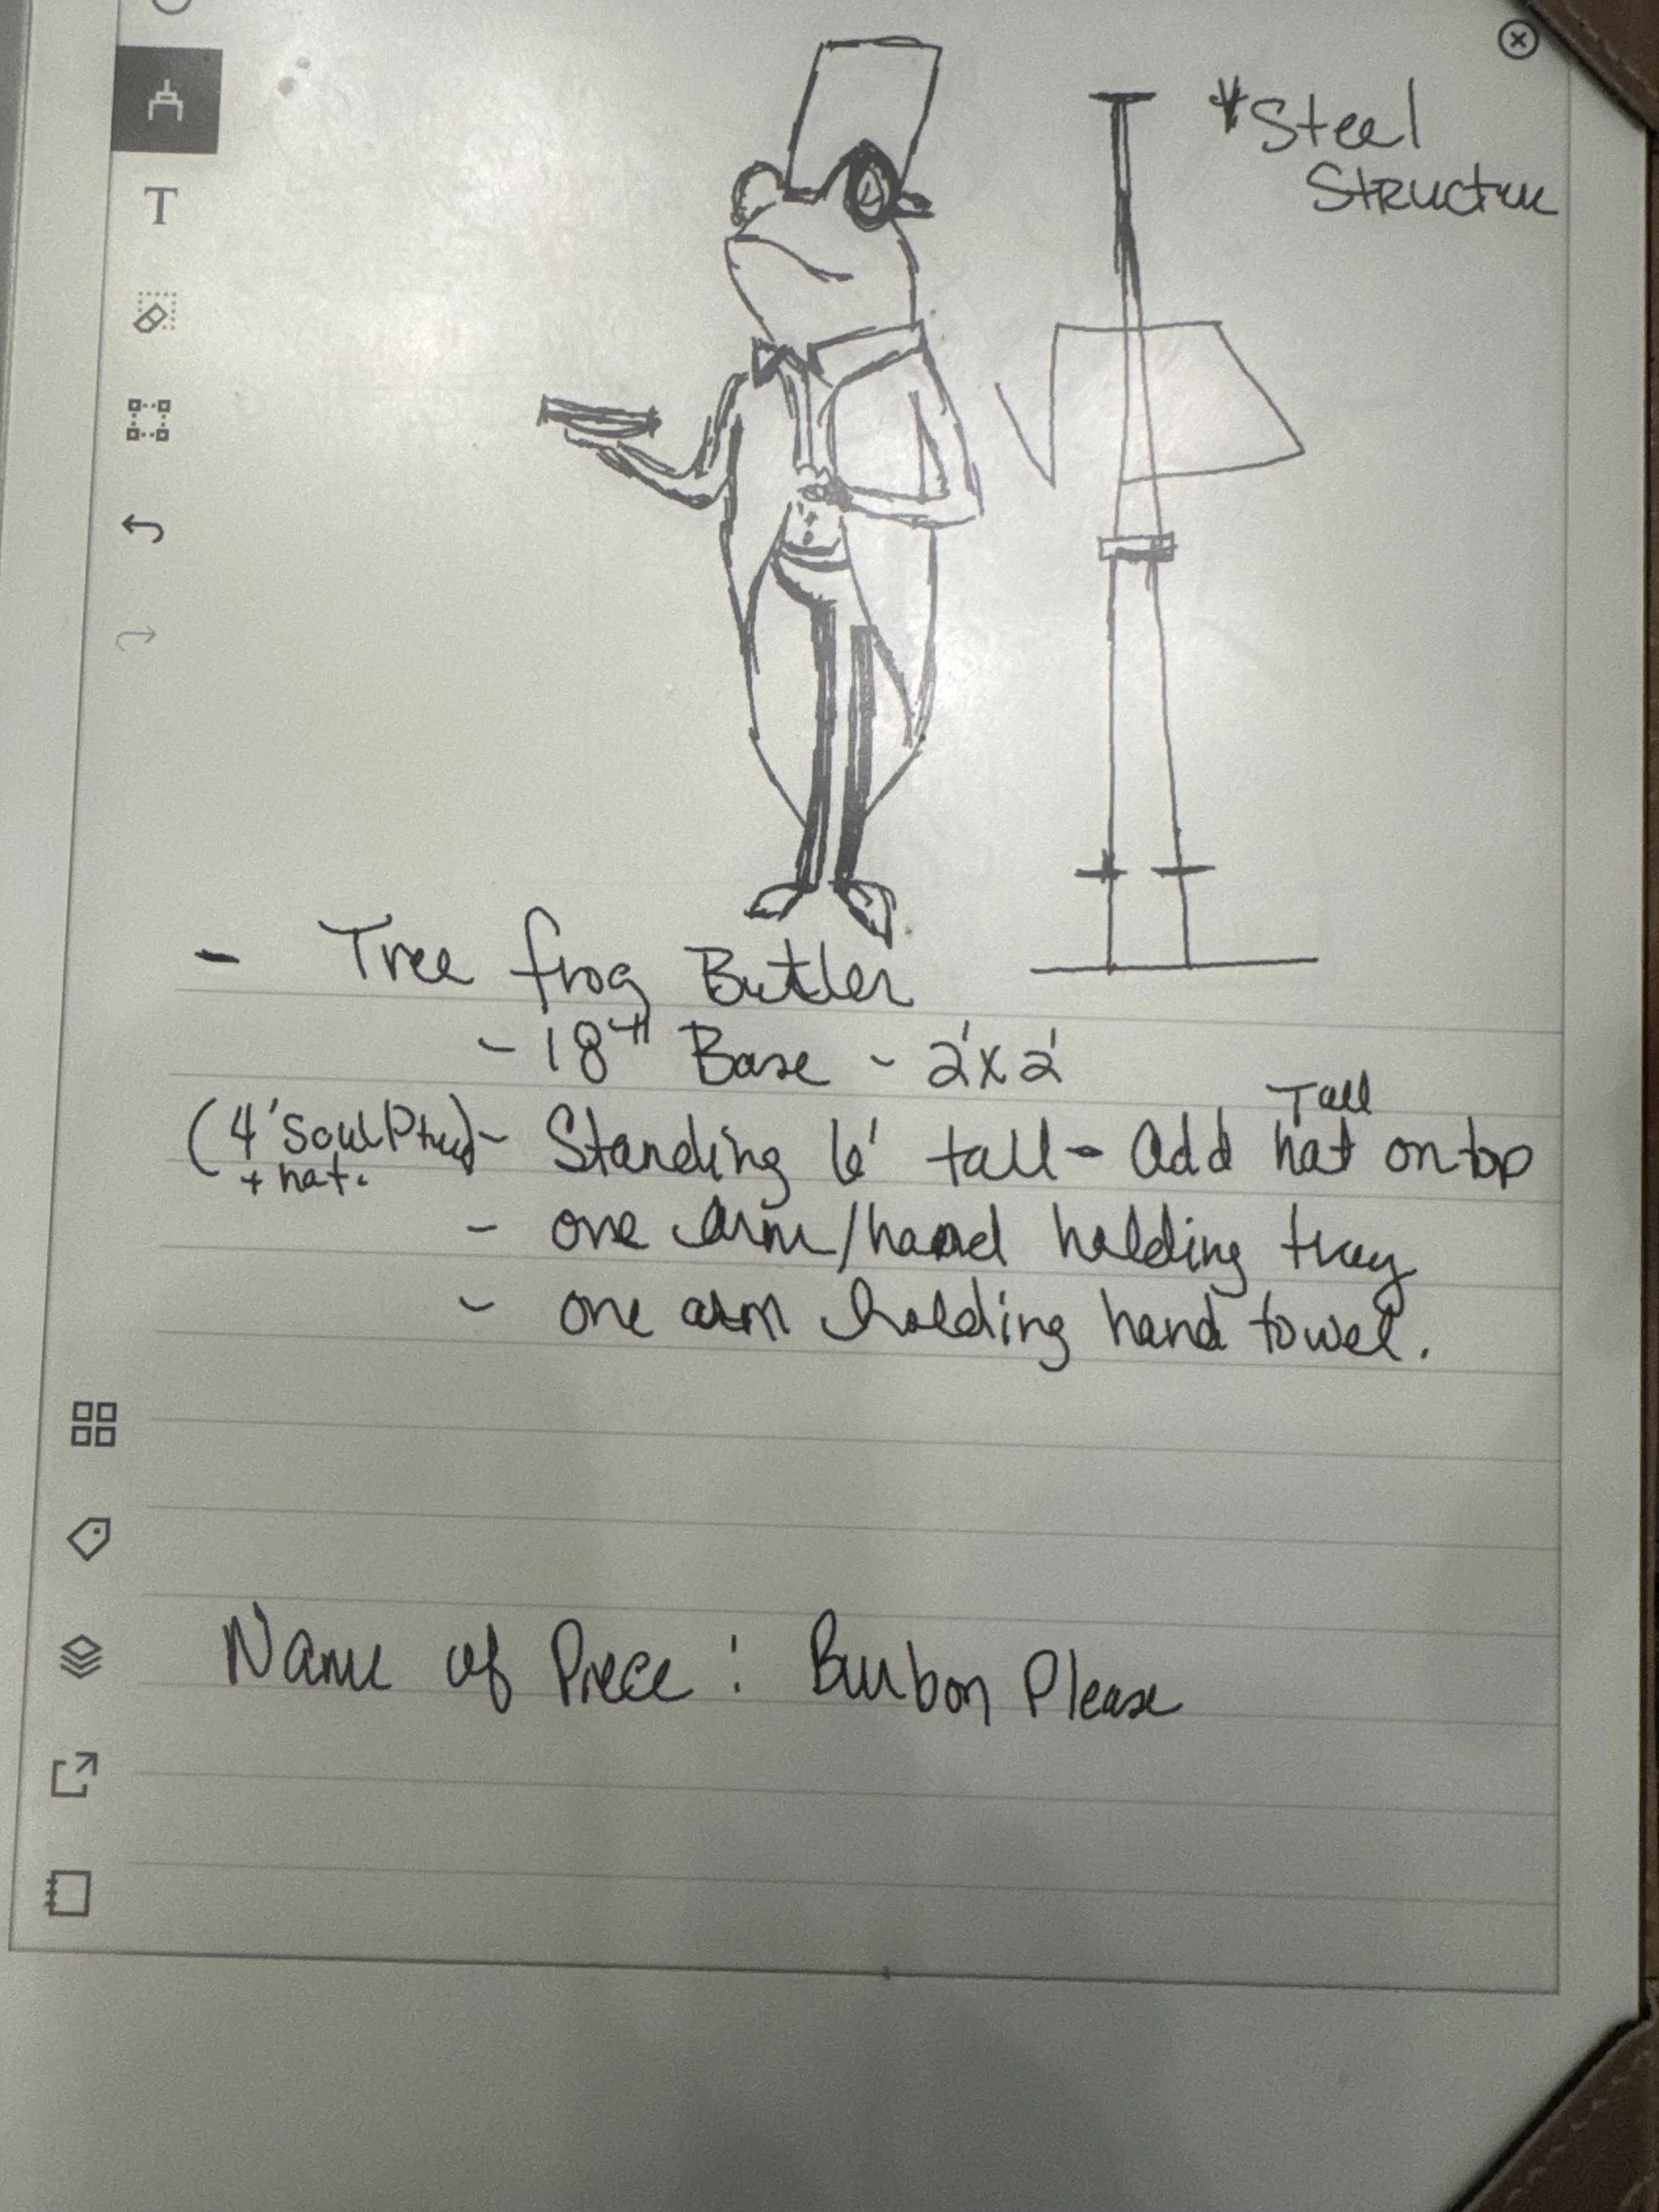 T
*Steel
Structure
- Tree frog Butler
- 18" Base - 2'x2'
Tall
(4' Soulptued) - Standing 6' tall - Add hat on top
+ hat.
- one arm/hand holding tray
- one arm holding hand towel.
Name of Piece: Burbon Please